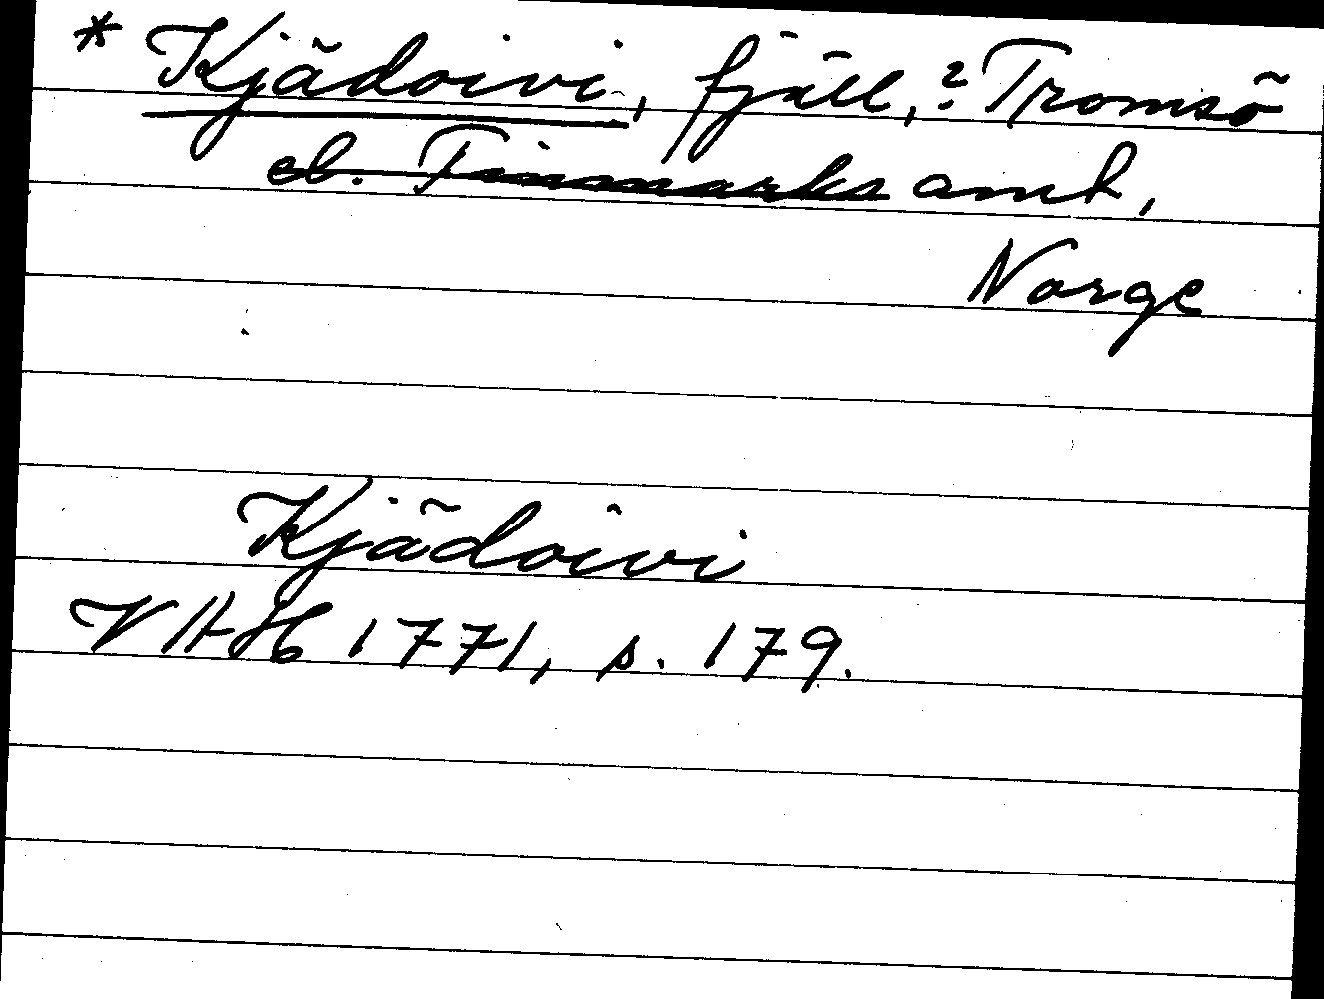 * Kjädoivi, fjäll, ? Tromsö
el. Finnmarks amt,
Norge
Kjädoivi
VHAH 1771, s. 179.